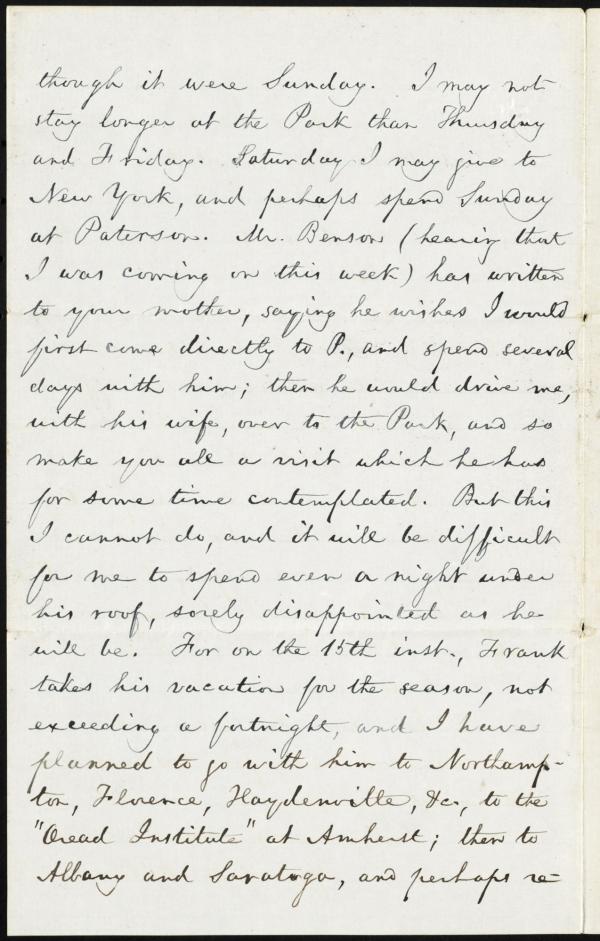 though it were Sunday. I may not
stay longer at the Park than Thursday
and Friday. Saturday I may give to
New York, and perhaps spend Sunday
at Paterson. Mr. Benson (hearing that
I was coming on this week) has written
to your mother, saying he wishes I would
first come directly to P., and spend several
days with him; then he would drive me,
with his wife, over to the Park, and so
make you all a visit which he has
for some time contemplated. But this
I cannot do, and it will be difficult
for me to spend even a night under
his roof, sorely disappointed as he
will be. For on the 15th inst., Frank
takes his vacation for the season, not
exceeding a fortnight, and I have
planned to go with him to Northamp-
ton, Florence, Haydenville, &c., to the
"Oread Institute" at Amherst; then to
Albany and Saratoga, and perhaps re-